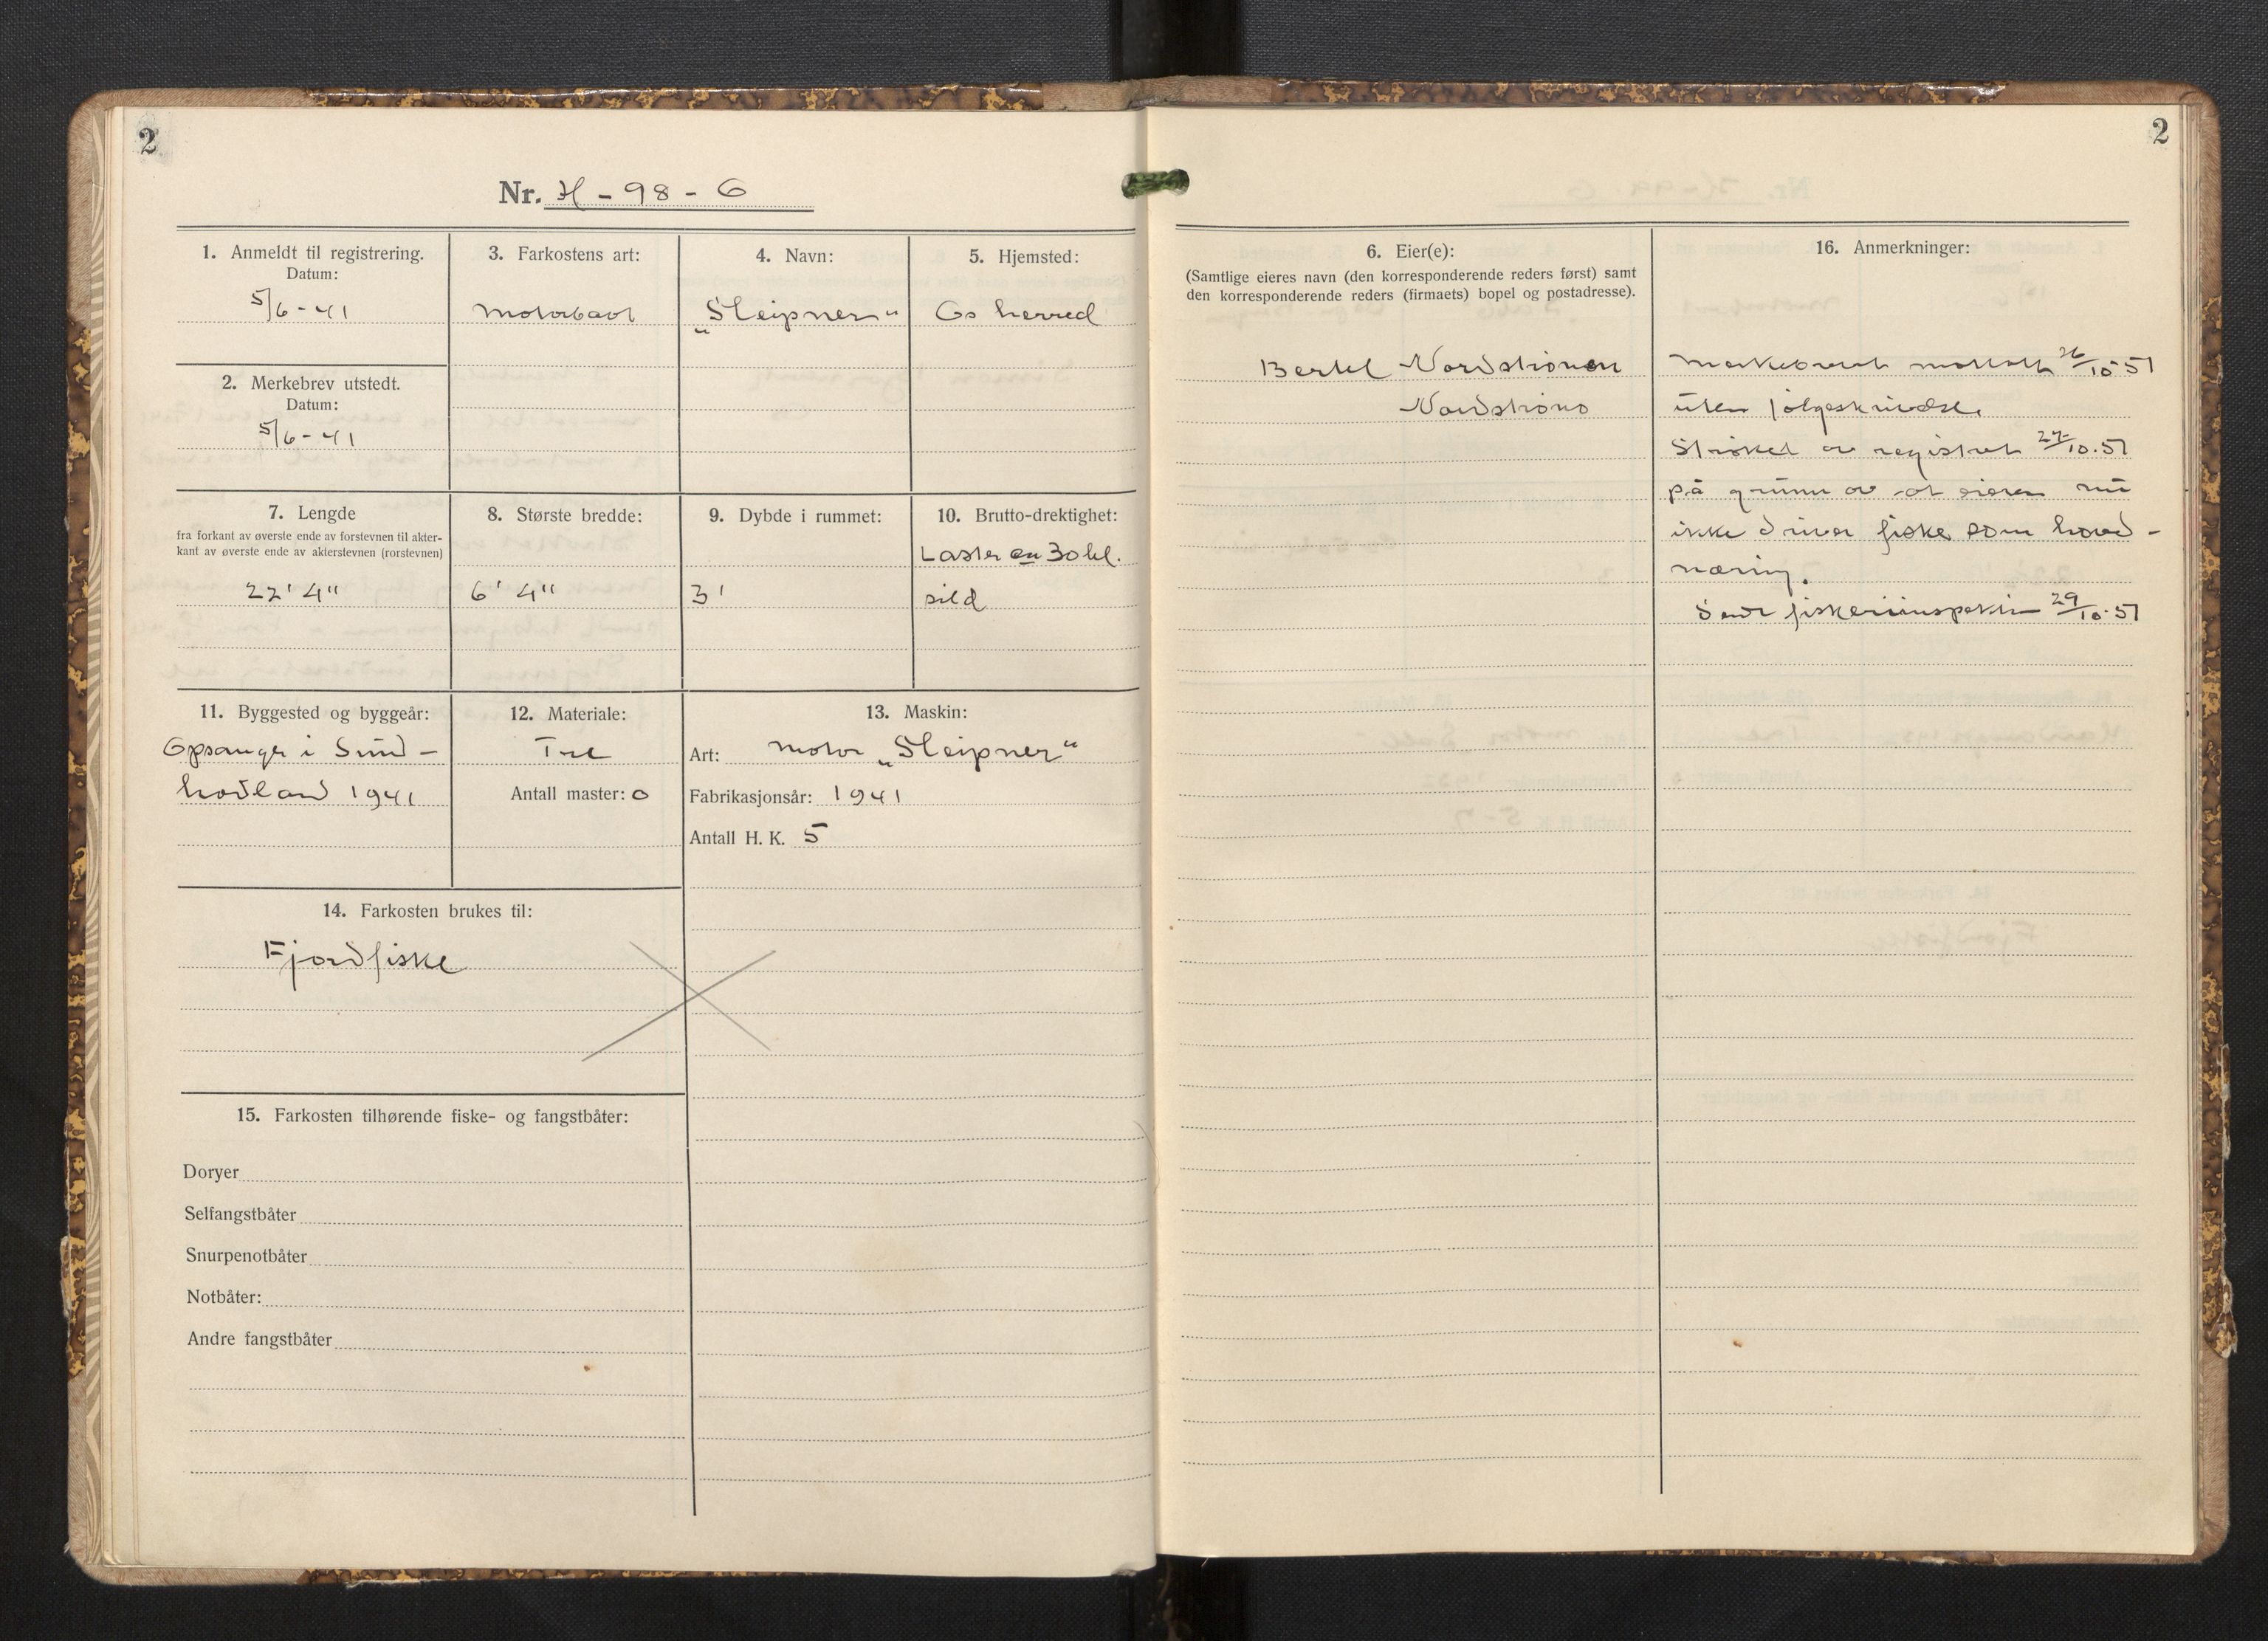 2
2
Nr. H - 98 - O
1. Anmeldt til registrering.
Datum:
5/6 - 41
2. Merkebrev utstedt.
Datum:
5/6 - 41
3. Farkostens art:
Motorbaot
4. Navn:
„Sleipner“
5. Hjemsted:
Os herred
7. Lengde
fra forkant av øverste ende av forstevnen til akter-
kant av øverste ende av akterstevnen (rorstevnen)
22' 4"
8. Største bredde:
6' 4"
9. Dybde i rummet:
3'
10. Brutto-drektighet:
Laster ca 30 hl.
sild
11. Byggested og byggeår:
Opsanger i Sund-
hordland 1941
12. Materiale:
Tre
Antall master: 0
13. Maskin:
Art: motor „Sleipner“
Fabrikasjonsår: 1941
Antall H. K. 5
14. Farkosten brukes til:
Fjordfiske
15. Farkosten tilhørende fiske- og fangstbåter:
Doryer
Selfangstbåter
Snurpenotbåter
Notbåter:
Andre fangstbåter
6. Eier(e):
(Samtlige eieres navn (den korresponderende reders først) samt
den korresponderende reders (firmaets) bopel og postadresse).
Bertel Nordstrønen
Nordstrøno
16. Anmerkninger:
Merkebrevet mottatt 26/10-51
uten følgeskrivelse.
Strøket av registret 27/10.51
på grunn av at eieren nu
ikke driver fiske som hoved-
næring.
Sendt fiskeriinspektør 29/10-51